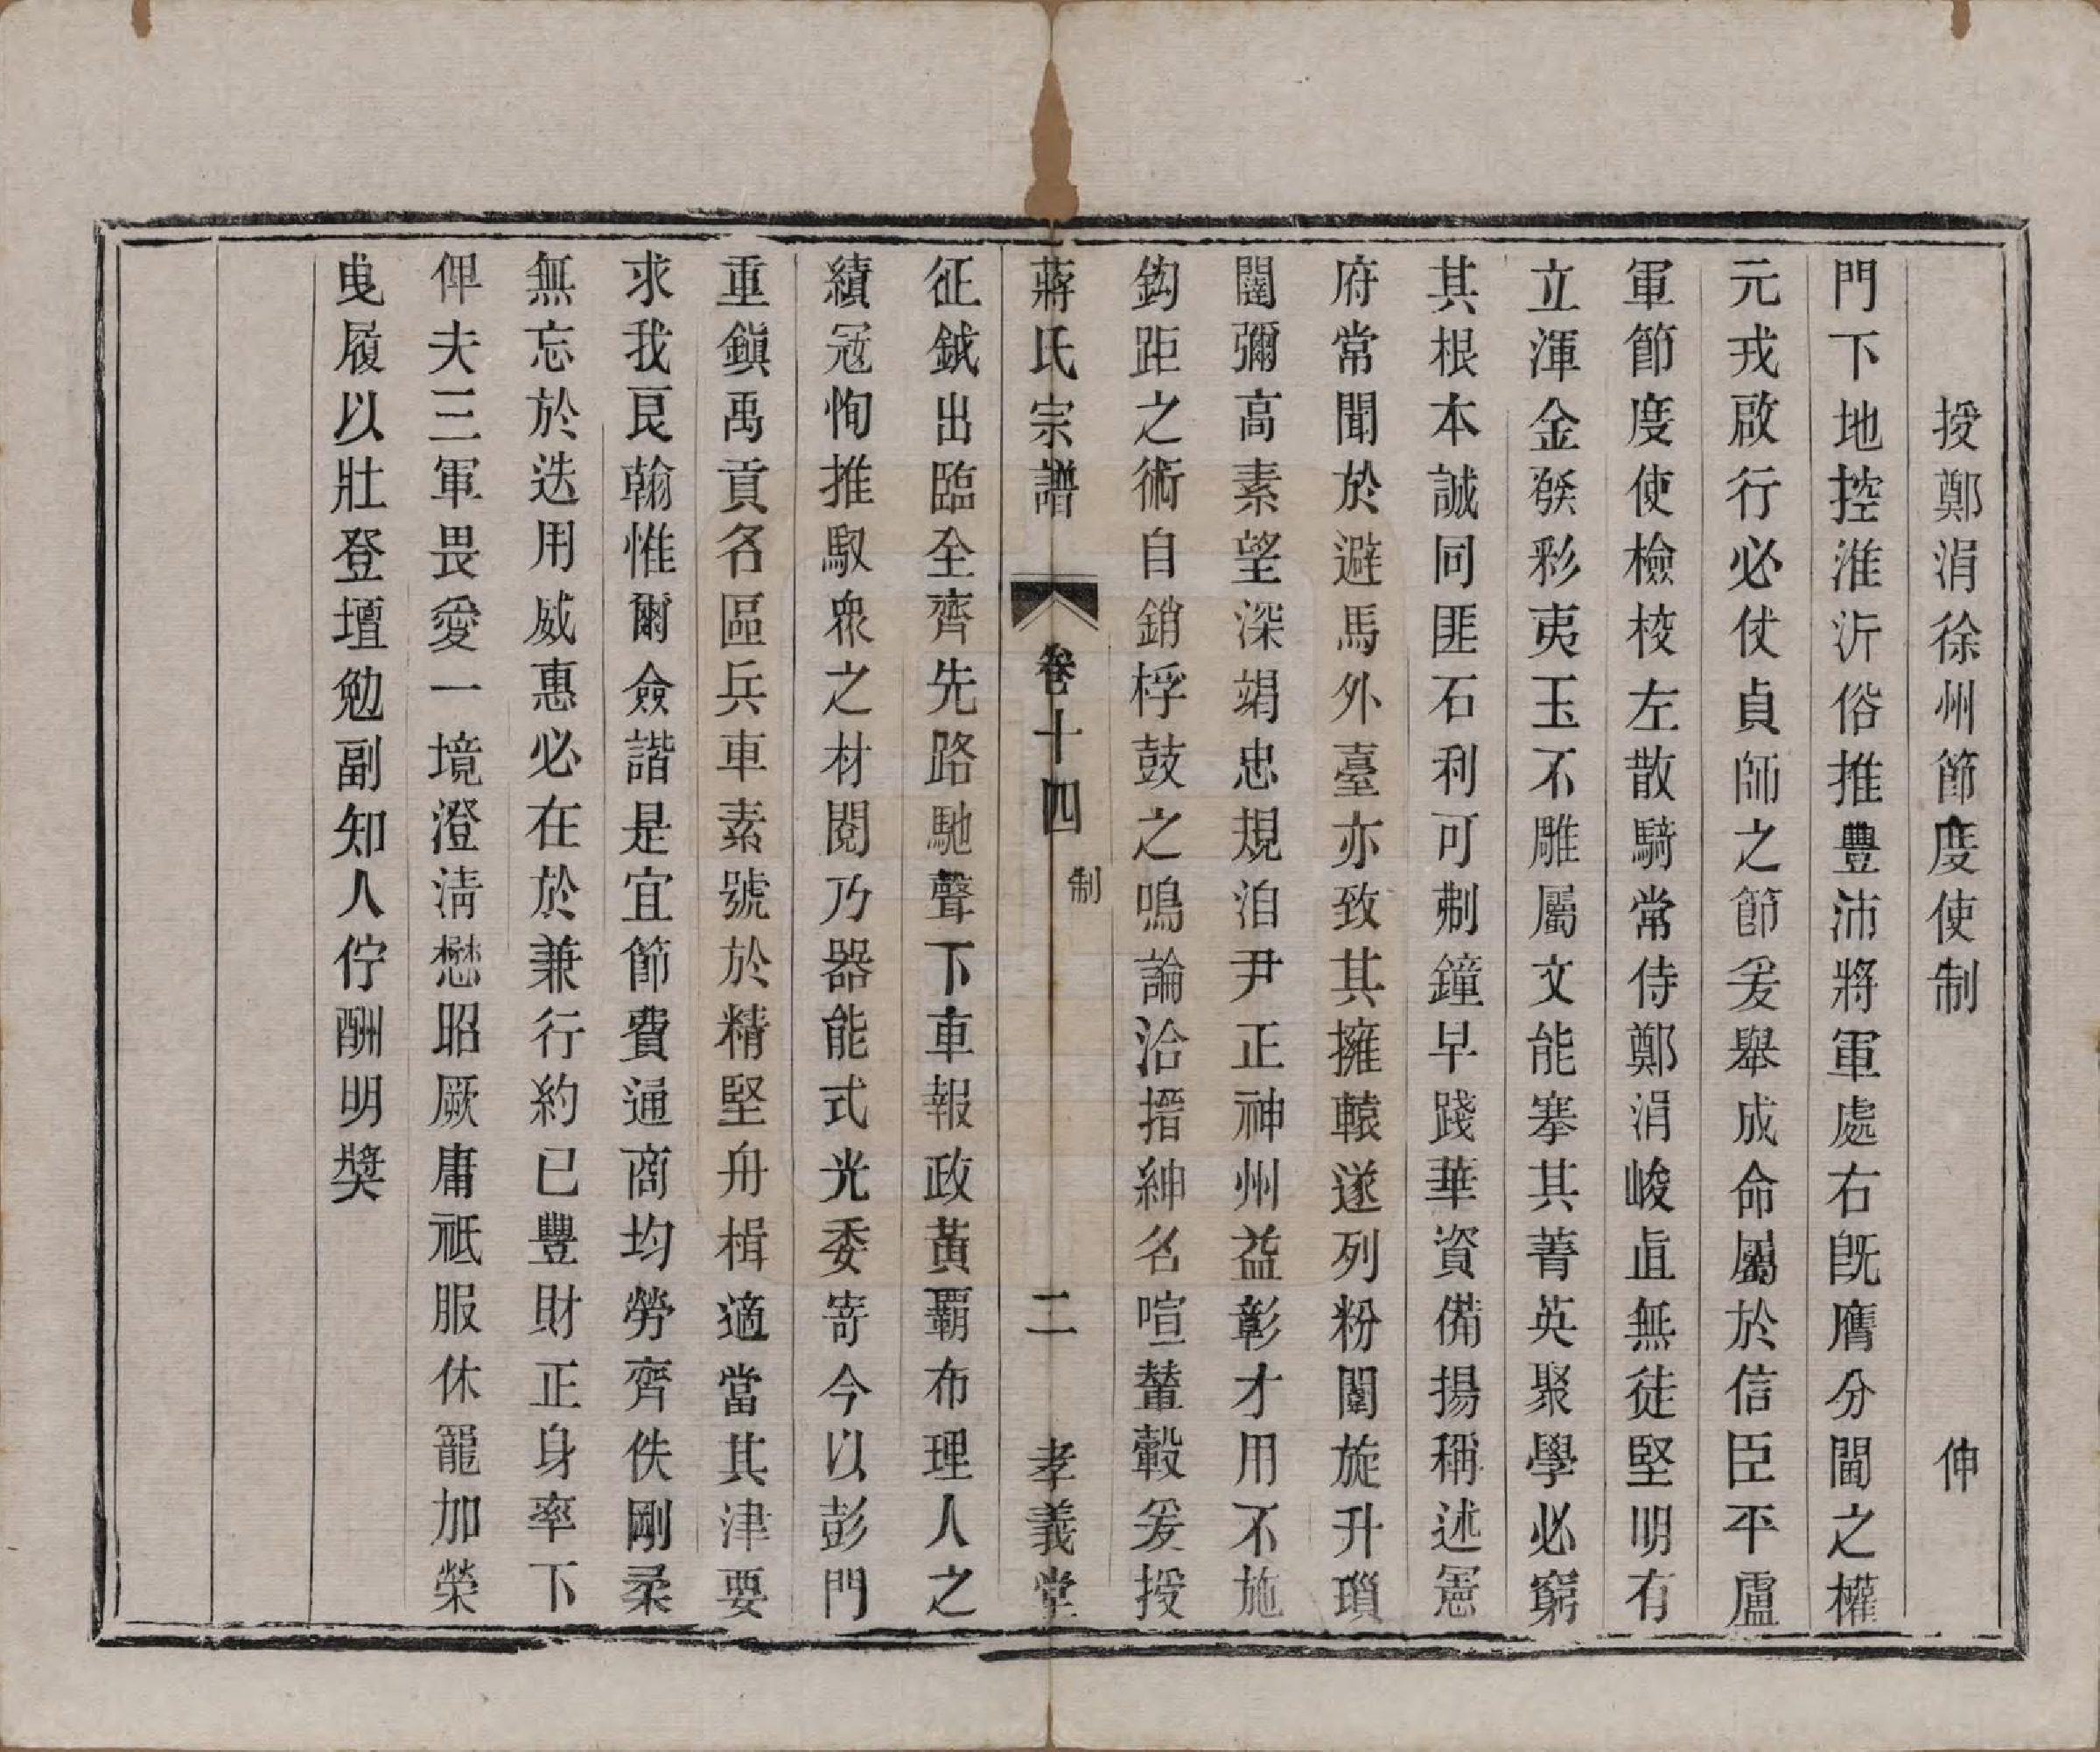 授鄭涓徐州節度使制 伸
門下地控淮沂俗推豐沛將軍處右旣膺分閫之權
元戎啟行必仗貞師之節爰舉成命屬於信臣平盧
軍節度使檢校左散騎常侍鄭涓峻直無徒堅明有
立渾金發彩夷玉不雕屬文能搴其菁英聚學必窮
其根本誠同匪石利可剸鐘早踐華資備揚稱述憲
府常聞於避馬外臺亦致其擁轅遂列粉闈旋升瑣
闥彌高素望深竭忠規洎尹正神州益彰才用不施
鈎距之術自銷桴鼓之鳴論洽搢紳名喧輦轂爰授
蔣氏宗譜 卷十四 制 二 孝義堂
征鉞出臨全齊先路馳聲下車報政黃霸布理人之
績寇恂推馭衆之材閱乃器能式光委寄今以彭門
重鎭禹貢名區兵車素號於精堅舟楫適當其津要
求我良翰惟爾僉諧是宜節費通商均勞齊佚剛柔
無忘於迭用威惠必在於兼行約已豐財正身率下
俾夫三軍畏愛一境澄清懋昭厥庸祗服休寵加榮
曳履以壯登壇勉副知人佇酬明奬